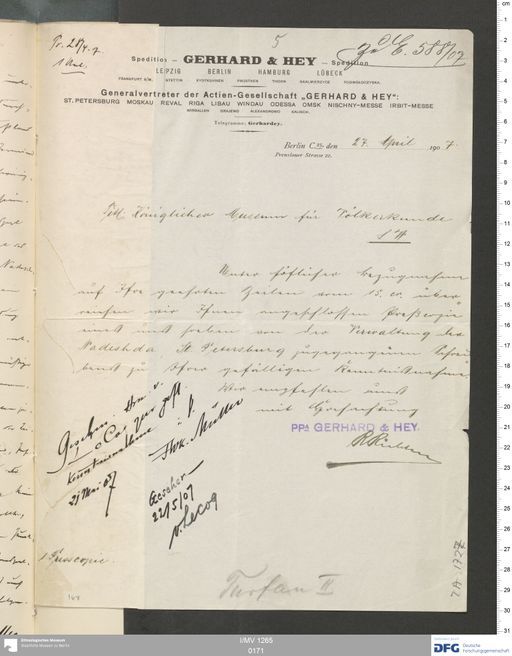 Pr. 28/4. 7.
1 Anl.
5
zu E. 588/07
Spedition — GERHARD & HEY — Spedition
LEIPZIG BERLIN HAMBURG LÜBECK
FRANKFURT A/M. STETTIN EYDTKUHNEN PROSTKEN THORN SKALMIERZYCE PODWOLOCZYSKA.
Generalvertreter der Actien-Gesellschaft „GERHARD & HEY“:
ST. PETERSBURG MOSKAU REVAL RIGA LIBAU WINDAU ODESSA OMSK NISCHNY-MESSE IRBIT-MESSE
WIRBALLEN GRAJEWO ALEXANDROWO KALISCH.
Telegramme: Gerhardey.
Berlin C. 25, den 27. April 1907.
Prenzlauer Strasse 22.
Tit. Königliches Museum für Völkerkunde
Unter höflicher Bezugnahme
auf Ihre geehrten Zeilen vom 15. cr. über-
reichen wir Ihnen angeschlossen
uns soeben von der Verwaltung der
Nadeshda, St. Petersburg zugegangenen Schrei-
bens zu Ihrer gefälligen Kenntnisnahme.
Wir empfehlen uns
mit Hochachtung
PPA GERHARD & HEY.
Gesehen. Herrn v.
le Coq zur gefl.
Kenntnisnahme
21 Mai 07
F.W.K. Müller
Gesehen
22/5/07
v. Lecoq
1 Presscopie.
164
Turfan II
IA. 1927
I/MV 1265
0171
Ethnologisches Museum
Staatliche Museen zu Berlin
DFG Deutsche
Forschungsgemeinschaft